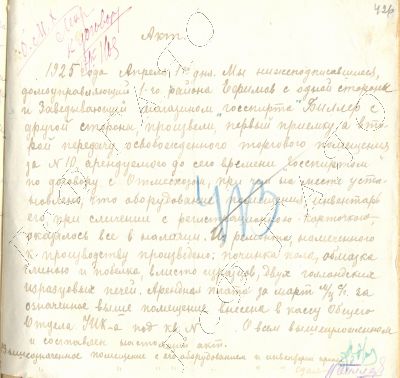 426
Акт.
1925 года Апреля 1го дня. Мы нижеподписавшиеся,
домоуправляющий 1-го района Ефимов с одной стороны
и Заведывающий магазином "Госспирта" Биллер с
другой стороны, произвели, первый приемку а вто-
рой передачу освобожденного торгового помещения
за № 10, арендуемого до сего времени Госспиртом
по договору с Отместхозом, при чем на месте уста-
новлено, что оборудование помещения и инвентарь
его при сличении с регистрационного карточкою,
оказалось все в наличии. Из ремонта, намеченного
к производству произведено: починка пола, обмазка
глиною и побелка, вместо двух голландских
изразцовых печей. Арендная плата за март м/ц с/г. за
означенное выше помещение внесена в кассу Общего
Отдела УИК-а под кв. №       О всем вышеизложенном
и составлен настоящий акт.
Вышеозначенное помещение с его оборудованием и инвентарем принял
Сдал
413